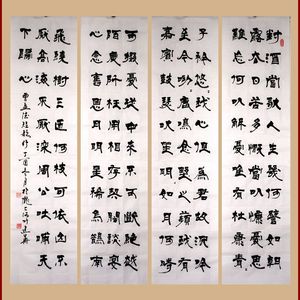 對酒當歌人生幾何譬如朝
露去日苦多慨當以慷憂思
難忘何以解憂唯有杜康青
子衿悠悠我心但為君故
至今呦鹿鳴食野之苹我有
嘉賓鼓瑟吹笙明明如月何時
可掇憂從中來不可斷絕越
陌度阡枉用相存契闊談讌
心念舊恩月明星稀烏鵲南
飛繞樹三匝何枝可依山不
厭高海不厭深周公吐哺天
下歸心
曹孟德短歌行